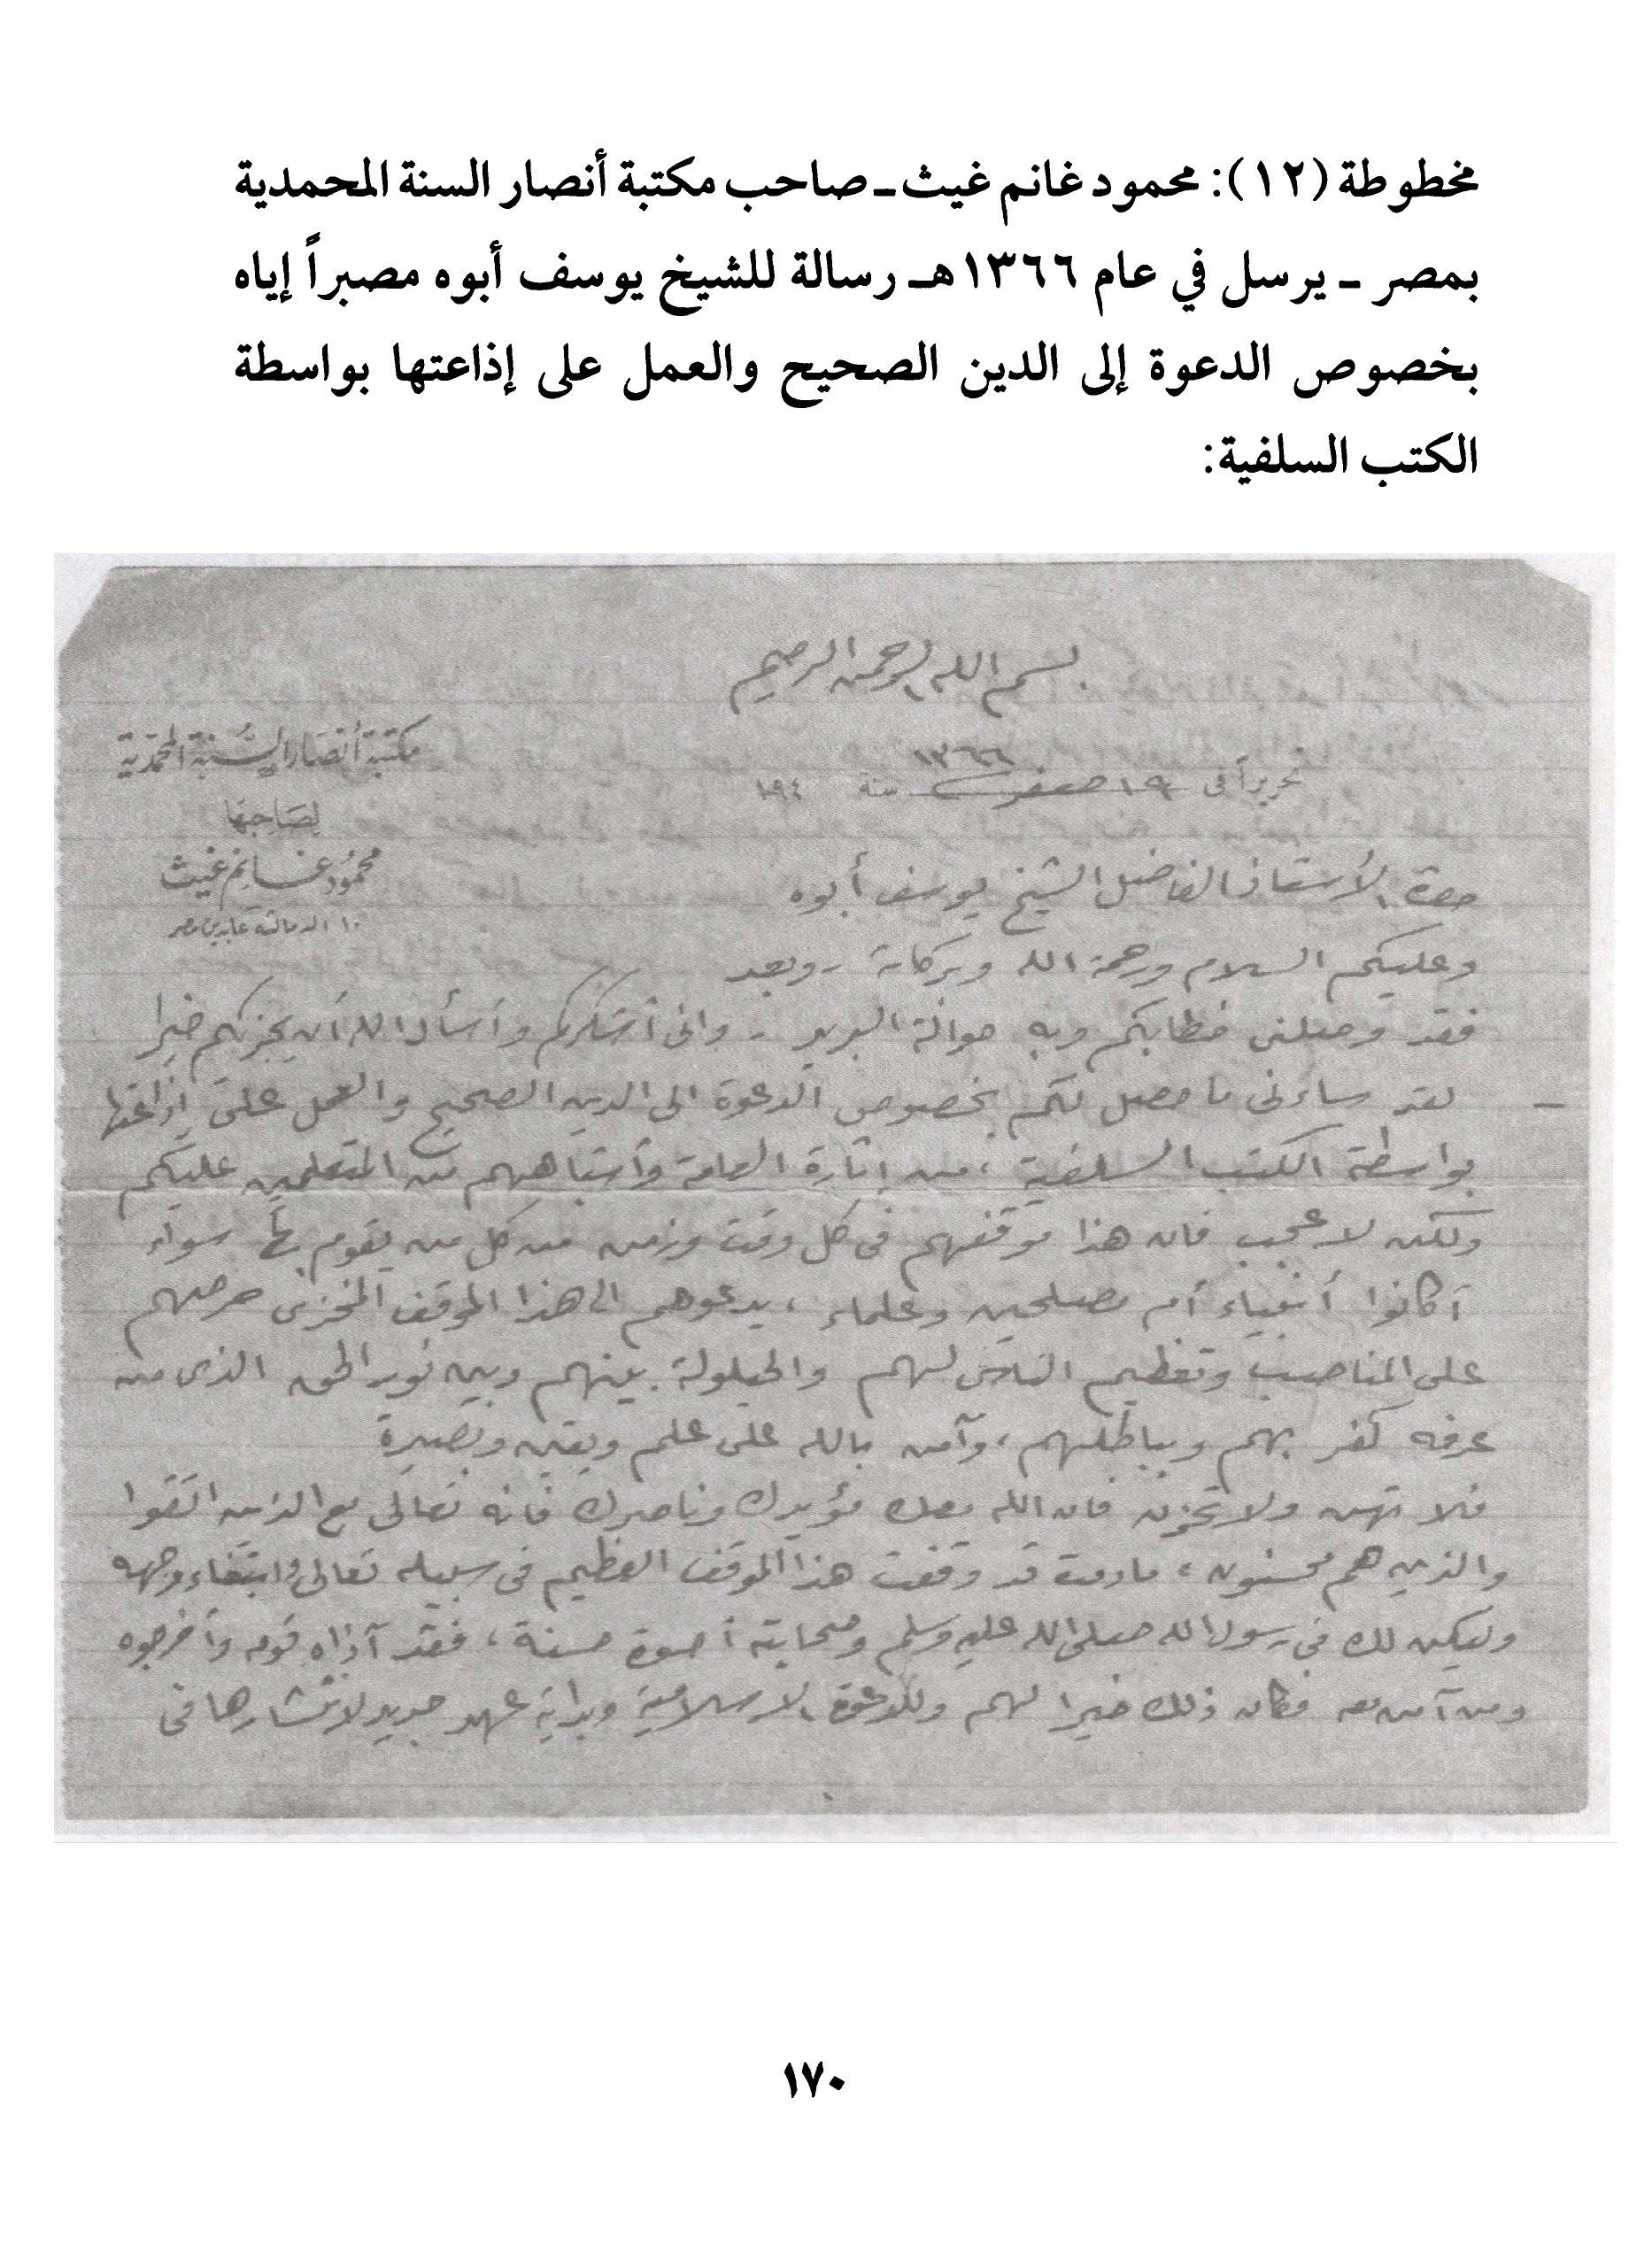 مخطوطة (١٢): محمود غانم غيث ـ صاحب مكتبة أنصار السنة المحمدية
بمصر ـ يرسل في عام ١٣٦٦هـ رسالة للشيخ يوسف أبوه مصبراً إياه
بخصوص الدعوة إلى الدين الصحيح والعمل على إذاعتها بواسطة
الكتب السلفية:
بسم الله الرحمن الرحيم
مكتبة أنصار السنة المحمدية
لصاحبها
محمود غانم غيث
١٠ الدمالشة عابدين مصر
تحريراً فى ١٩ صفر ١٣٦٦ سنة ١٩٤
حضرة الأستاذ الفاضل الشيخ يوسف أبوه
وعليكم السلام ورحمة الله وبركاته - وبعد
فقد وصلنى خطابكم وبه حوالة البريد - وانى أشكركم وأسأل الله أن يجزيكم خيرا
- لقد ساءنى ما حصل لكم بخصوص الدعوة الى الدين الصحيح والعمل على إذاعتها
بواسطة الكتب السلفية ، من إثارة العامة وأشباههم من المتعلمين عليكم
ولكن لا عجب فان هذا موقفهم فى كل وقت وزمن من كل من يقوم بها سواء
أكانوا أنبياء أم مصلحين وعلماء ، يدعوهم الى هذا الموقف المخزى حرصهم
على المناصب وتعظيم الناس لهم والحيلولة بينهم وبين نور الحق الذى من
عرفه كفر بهم وبباطلهم ، وآمن بالله على علم ويقين وبصيرة
فلا تهن ولا تحزن فان الله معك مؤيدك وناصرك فانه تعالى مع الذين اتقوا
والذين هم محسنون ، ما دمت قد وقفت هذا الموقف العظيم فى سبيله تعالى وابتغاء وجهه
وليكن لك فى رسول الله صلى الله عليه وسلم وصحابته أسوة حسنة ، فقد آذاه قومه وأخرجوه
ومن آمن معه فكان ذلك خيرا لهم وللدعوة الاسلامية وبداية عهد جديد لانتشارها فى
١٧٠